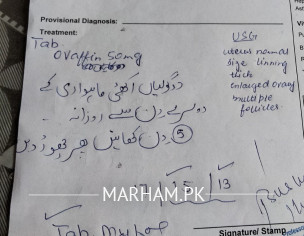 Provisional Diagnosis:
Treatment:
Tab
Ovaffin 50mg
دو گولیاں اکٹھی ماہواری کے
دوسرے دن سے روزانہ
5 دن کھائیں پھر چھوڑ دیں
USG
uterus normal
size linning
thick
enlarged ovary
multiple
follicles
MARHAM.PK
13
Tab
Signature/ Stamp